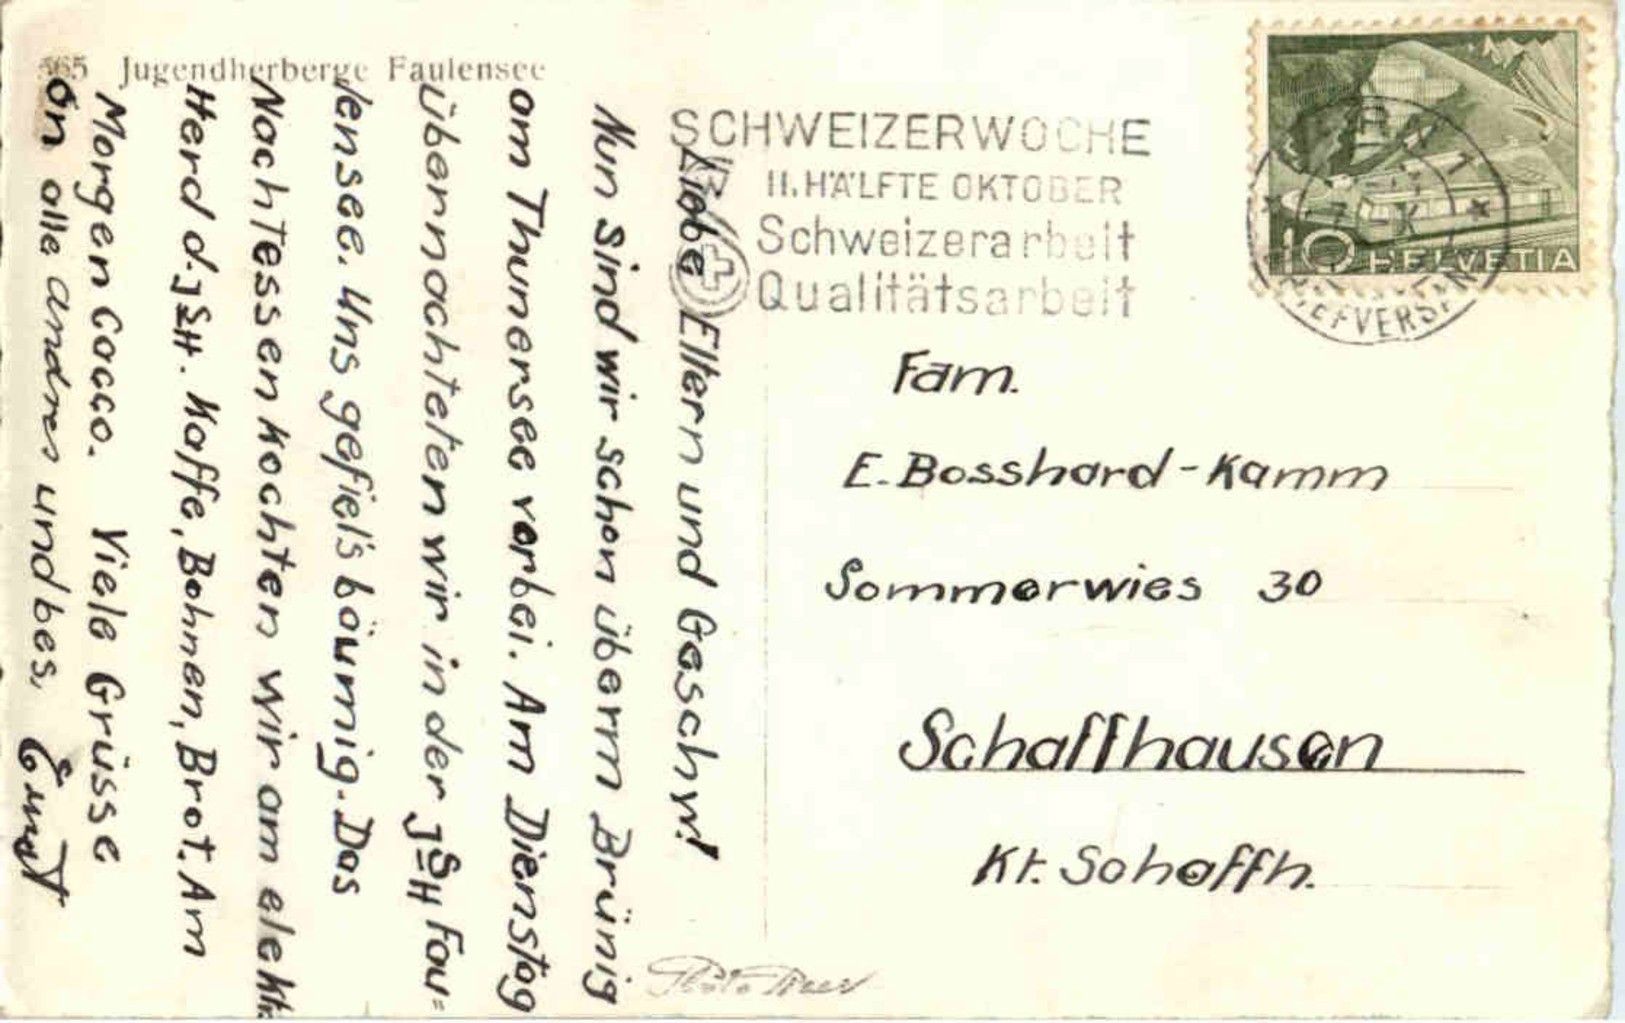 565 Jugendherberge Faulensee
Liebe Eltern und Geschw!
Nun sind wir schon überm Brünig
am Thunersee vorbei. Am Dienstag
übernachteten wir in der JSH Fau=
lensee. Uns gefiel's bäumig. Das
Nachtessen kochten wir am elektr.
Herd d. JSH. Kaffe, Bohnen, Brot. Am
Morgen Cacao. Viele Grüsse
an alle andres und bes. Ernst
SCHWEIZERWOCHE
II. HÄLFTE OKTOBER
Schweizerarbeit
Qualitätsarbeit
10 HELVETIA
BRIEFVERSAND
Fam.
E. Bosshard-Kamm
Sommerwies 30
Schaffhausen
Kt. Schaffh.
Photo